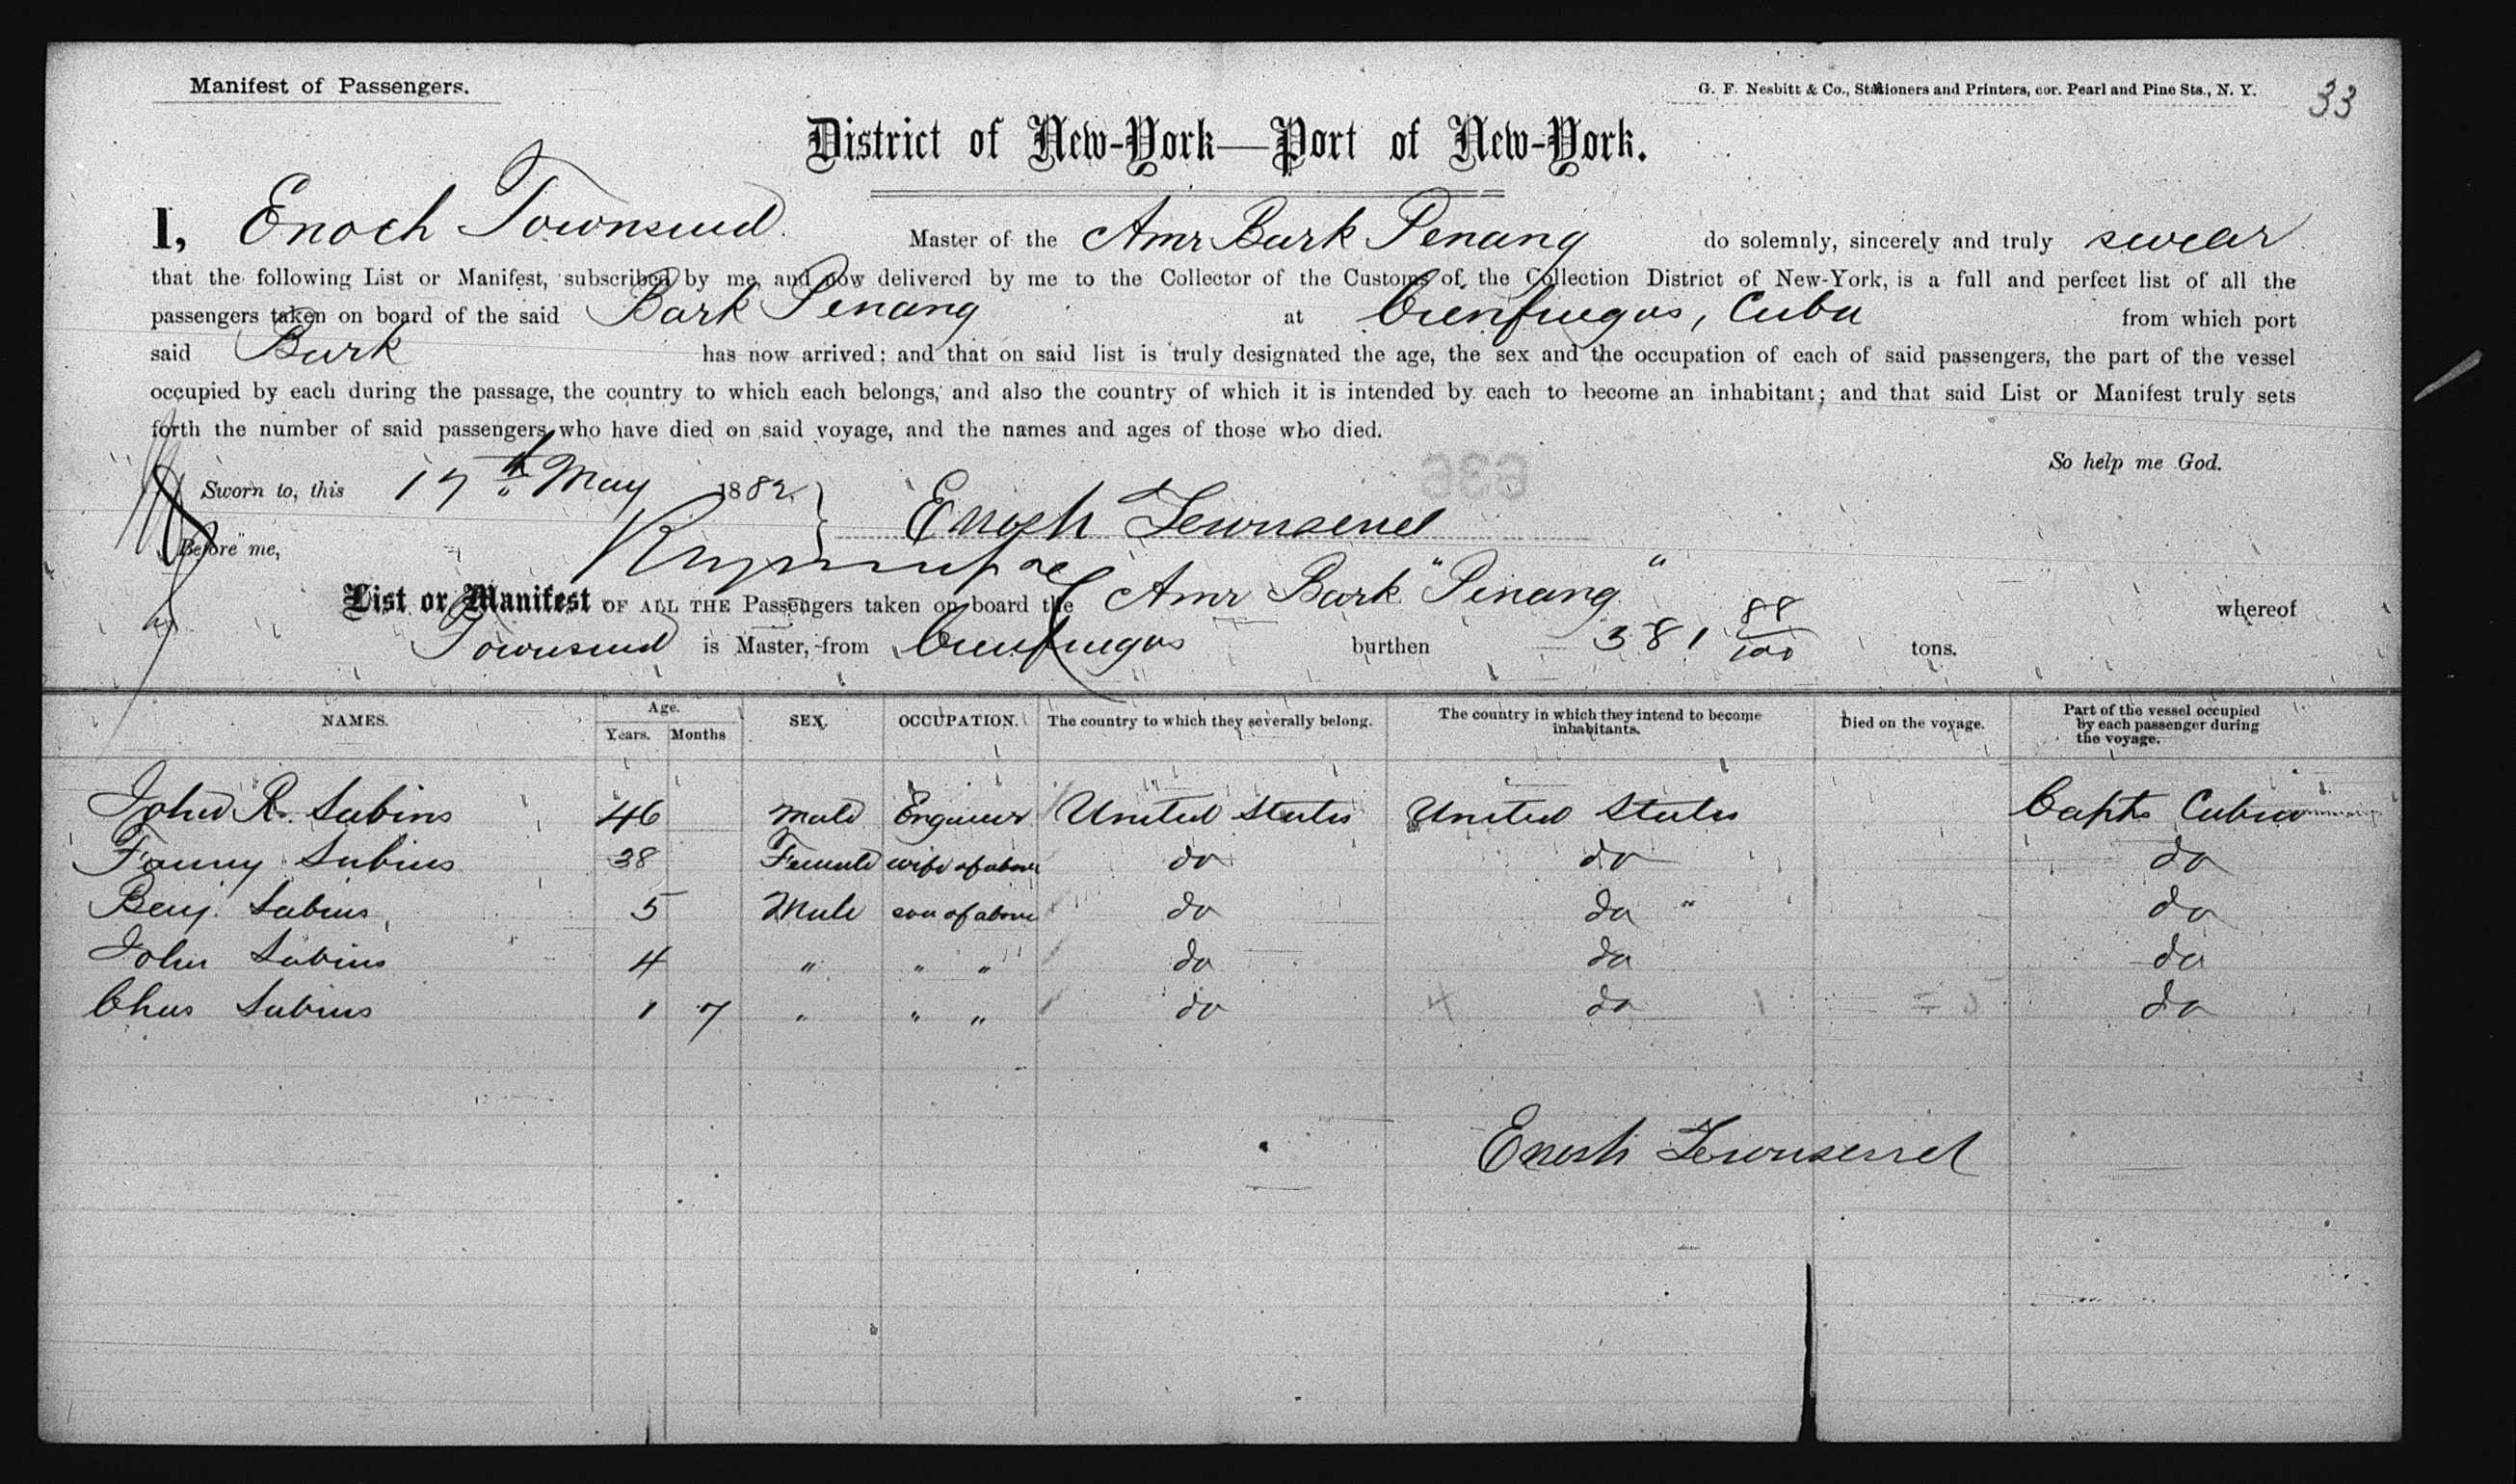 Manifest of Passengers.
G. F. Nesbitt & Co., Stationers and Printers, cor. Pearl and Pine Sts., N. Y.
33
District of New-York—Port of New-York.
I, Enoch Townsend Master of the Amr Bark Penang do solemnly, sincerely and truly swear
that the following List or Manifest, subscribed by me, and now delivered by me to the Collector of the Customs of the Collection District of New-York, is a full and perfect list of all the
passengers taken on board of the said Bark Penang at Cienfuegos, Cuba from which port
said Bark has now arrived; and that on said list is truly designated the age, the sex and the occupation of each of said passengers, the part of the vessel
occupied by each during the passage, the country to which each belongs, and also the country of which it is intended by each to become an inhabitant; and that said List or Manifest truly sets
forth the number of said passengers who have died on said voyage, and the names and ages of those who died.
So help me God.
Sworn to, this 17th May 1882.
Enoch Townsend
Before me,
List or Manifest OF ALL THE Passengers taken on board the Amr Bark "Penang" whereof
Townsend is Master, from Cienfuegos burthen 381 88/100 tons.
NAMES. Age. Years. Months SEX. OCCUPATION. The country to which they severally belong. The country in which they intend to become inhabitants. Died on the voyage. Part of the vessel occupied by each passenger during the voyage.
John R. Subins 46 Male Engineer United States United States Capts Cabin
Fanny Subins 38 Female wife of above do do do
Benj. Subins 5 Male son of above do do " do
John Subins 4 " " " do do do
Chas Subins 1 7 " " " do do do
Enoch Townsend